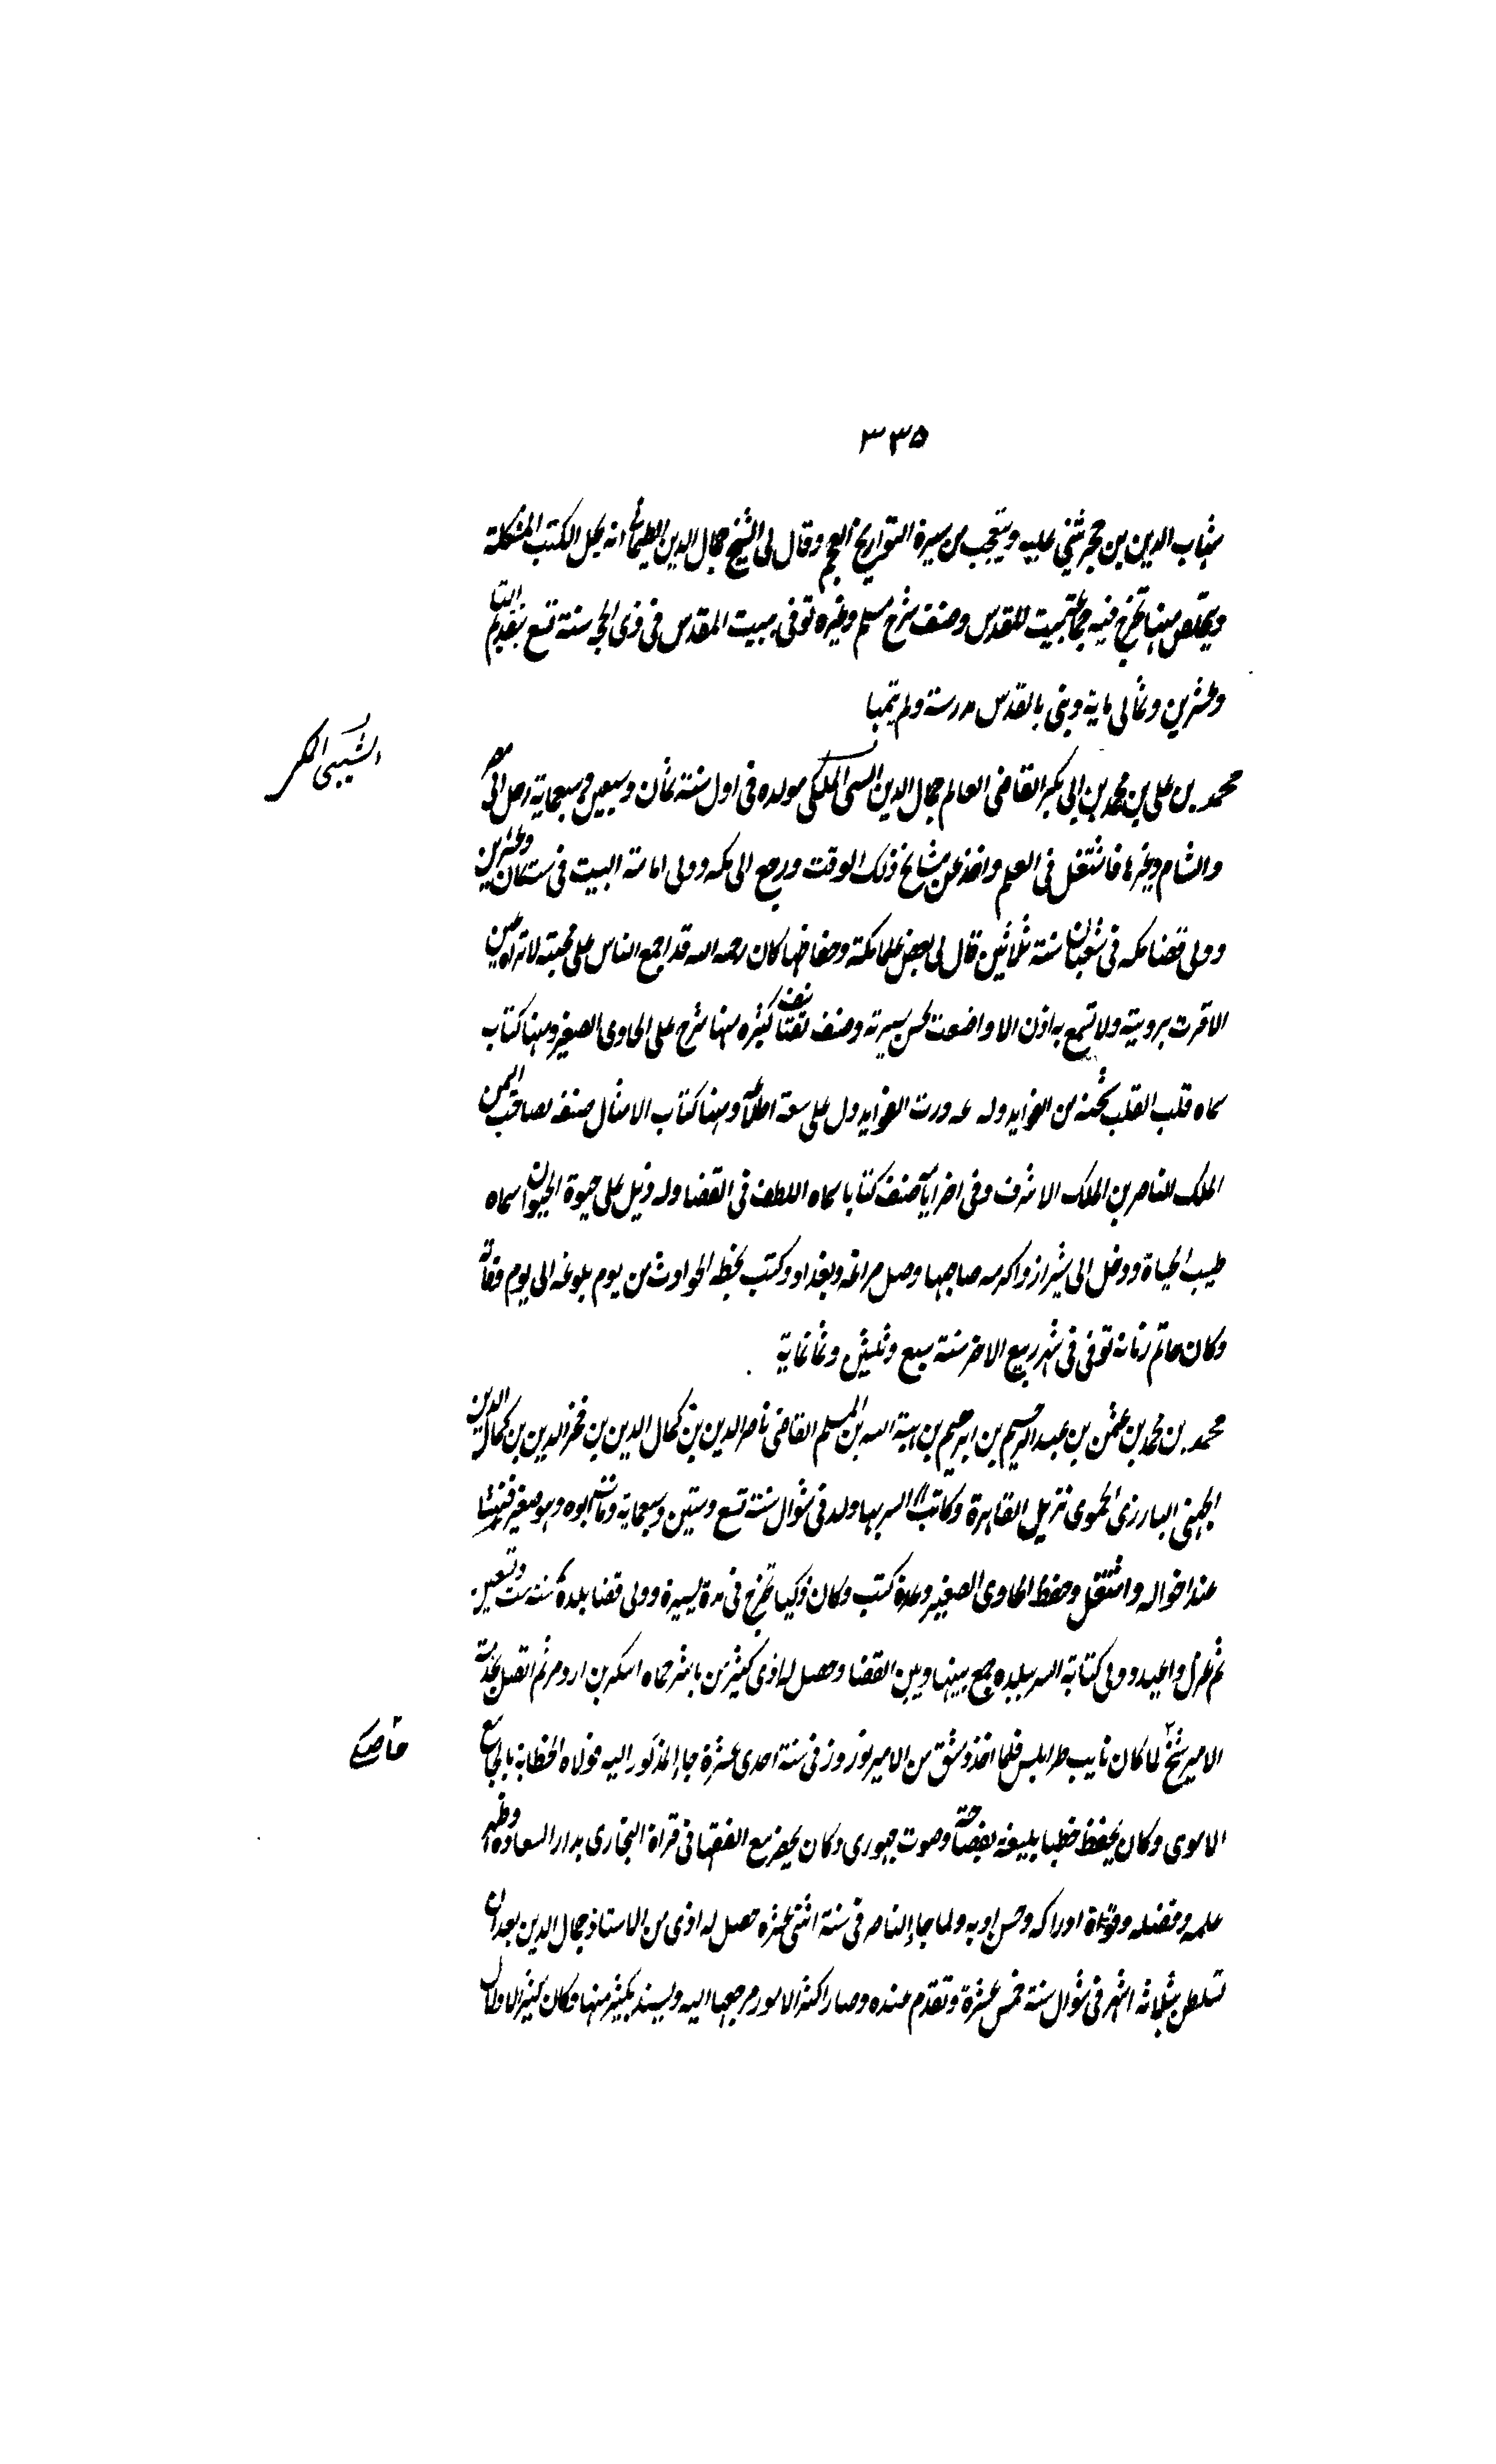 ٣٣٥
شهاب الدين بن حجر يثني عليه ويتعجب من سيرة التواريخ العجم وقال لى الشيخ جمال الدين الطيمانى انه يحل الكتب المشكلة
ويتخلص فيها تخرج فيه جماعة ببيت المقدس وصنف شرح مسلم وغيره توفى ببيت المقدس فى ذى الحجه سنة تسع بتقديم التا
وعشرين وثمانى ماية وبنى بالقدس مدرسة ولم يتمها
الشيبى المكى
محمد بن على بن محمد بن ابى بكر القاضى العالم جمال الدين الشيبى المكى مولده فى اول سنة ثمان وسبعين وسبعماية رحل الى مصر
والشام وغيرها فاشتغل فى العلم واخذ عن مشايخ ذلك الوقت ورجع الى مكه وولى امامة البيت فى سنة ثمان وعشرين
وولى قضا مكه فى شعبان سنة ثلاثين قال لى بعض علما مكة وحفاظها كان رحمه الله قد اجمع الناس على محبته لا تراه عين
الا قرت برويته ولا تسمع به اذن الا واضعت لحسن سيرته وصنف تصانيف كثيره منها شرح على الحاوى الصغير ومنها كتاب
سماه قلب القلب من الفوايد وله دل على سعة اطلاعه ومنها كتاب الامثال صنفه لصاحب اليمن
الملك الناصر بن الملك الاشرف وفى اخر ايامه صنف كتابا سماه اللطف فى القضا وله ذيل على حيوة الحيوان سماه
طيب الحياة ودخل الى شيراز واكرمه صاحبها وصل مراغه وبغداد وكتب بخطه الحوادث من يوم بلوغه الى يوم وفاته
وكان حاتم زمانه توفى فى شهر ربيع الاخر سنة سبع وثلثين وثمانماية
محمد بن محمد بن عثمن بن محمد بن عبد الرحيم بن ابرهيم بن هبة الله بن المسلم القاضى ناصر الدين بن كمال الدين بن فخر الدين بن كمال الدين
الجهنى البارزى الحموى نزيل القاهرة وكاتب السر بها ولد فى شوال سنة تسع وستين وسبعماية ومات ابوه وهو صغير فنشا
عند اخواله واشتغل وحفظ الحاوى الصغير وعدة كتب وكان ذكيا تخرج فى مدة يسيرة وولى قضا بلده سنة ست وتسعين
ثم عزل واعيد وولى كتابة السر ببلده جمع بينها وبين القضا وحصل له اذى كثير من مباشر حماه ثم اتصل بخدمة
الامير شيخ لما كان نايب طرابلس فلما اخذ دمشق من الامير نوروز فى سنة احدى عشرة جا المذكور اليه فولاه الخطابة بالجامع
الاموى وكان يحفظ خطبا بليغه بفصاحة وصوت جهورى وكان يحضر مع الفقها فى قراة البخارى بدار السعادة وظهر
علمه وفضله وقوة ادراكه وحسن ادبه ولما جا الناصر فى سنة اثنتى عشرة حصل له اذى من الاستاذ جمال الدين بعد ان
تسلطن بثلاثه اشهر فى شوال سنة خمس عشرة وتقدم عنده وصار اكثر الامور مرجعها اليه ويستبد بكثير منها وكان كثير